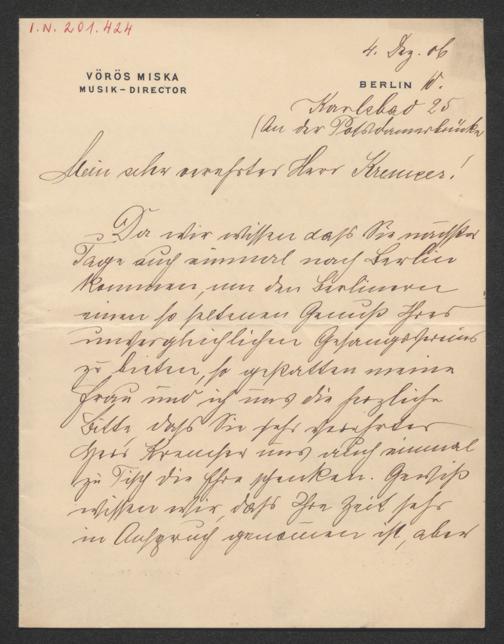 I.N. 201.424
4. Dez. 06
VÖRÖS MISKA
MUSIK-DIRECTOR
BERLIN W.
Karlsbad 25
(An der Potsdamerbrücke
Mein sehr verehrter Herr Kremser!
Da wir wissen dass Sie nächster
Tage auch einmal nach Berlin
kommen, um den Berlinern
einen so seltenen Genuß Ihres
unvergleichlichen Gesangsvereins
zu bieten, so gestatten meine
Frau und ich uns die herzliche
Bitte, daß Sie sehr verehrter
Herr Kremser uns auch einmal
zu Tisch die Ehre schenken. Gewiß
wissen wir, daß Ihre Zeit sehr
in Anspruch genommen ist, aber